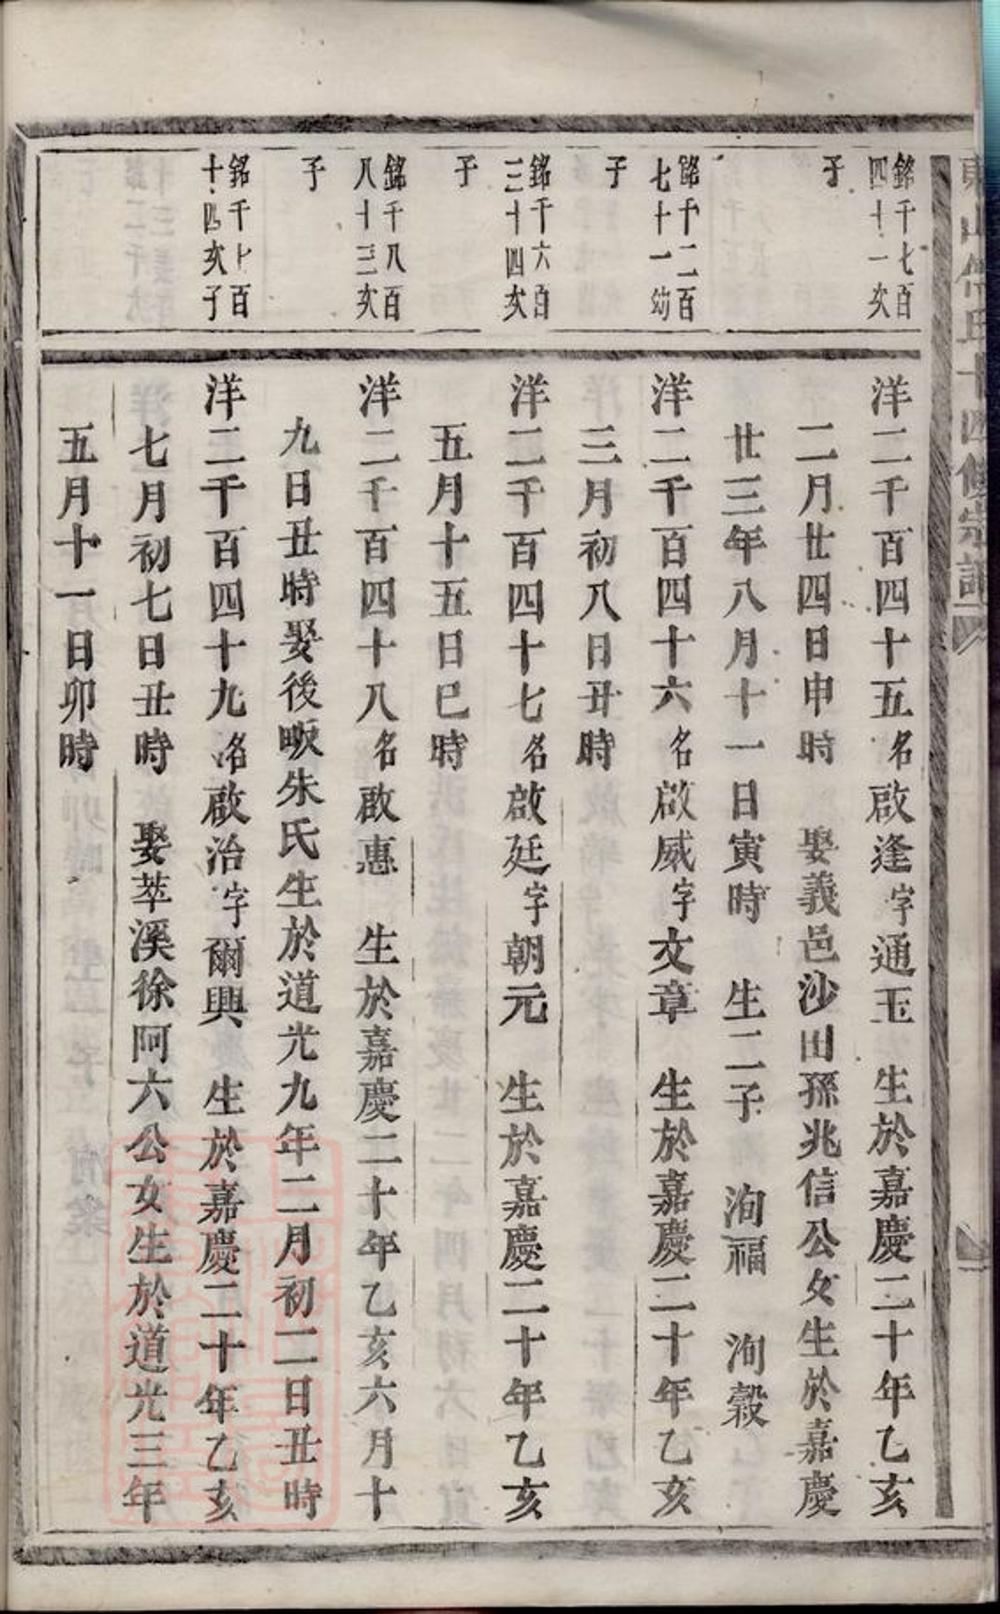 銘千七百
四十一次
子
銘千二百
七十一幼
子
銘千六百
三十四次
子
銘千八百
八十三次
子
銘千七百
十四次子
洋二千百四十五名啟逢字通玉 生於嘉慶二十年乙亥
二月廿四日申時 娶義邑沙田孫兆信公女生於嘉慶
廿三年八月十一日寅時 生二子 洵福 洵穀
洋二千百四十六名啟威字文章 生於嘉慶二十年乙亥
三月初八日丑時
洋二千百四十七名啟廷字朝元 生於嘉慶二十年乙亥
五月十五日巳時
洋二千百四十八名啟惠 生於嘉慶二十年乙亥六月十
九日丑時娶後畈朱氏生於道光九年二月初二日丑時
洋二千百四十九名啟治字爾興 生於嘉慶二十年乙亥
七月初七日丑時 娶萃溪徐阿六公女生於道光三年
五月十一日卯時